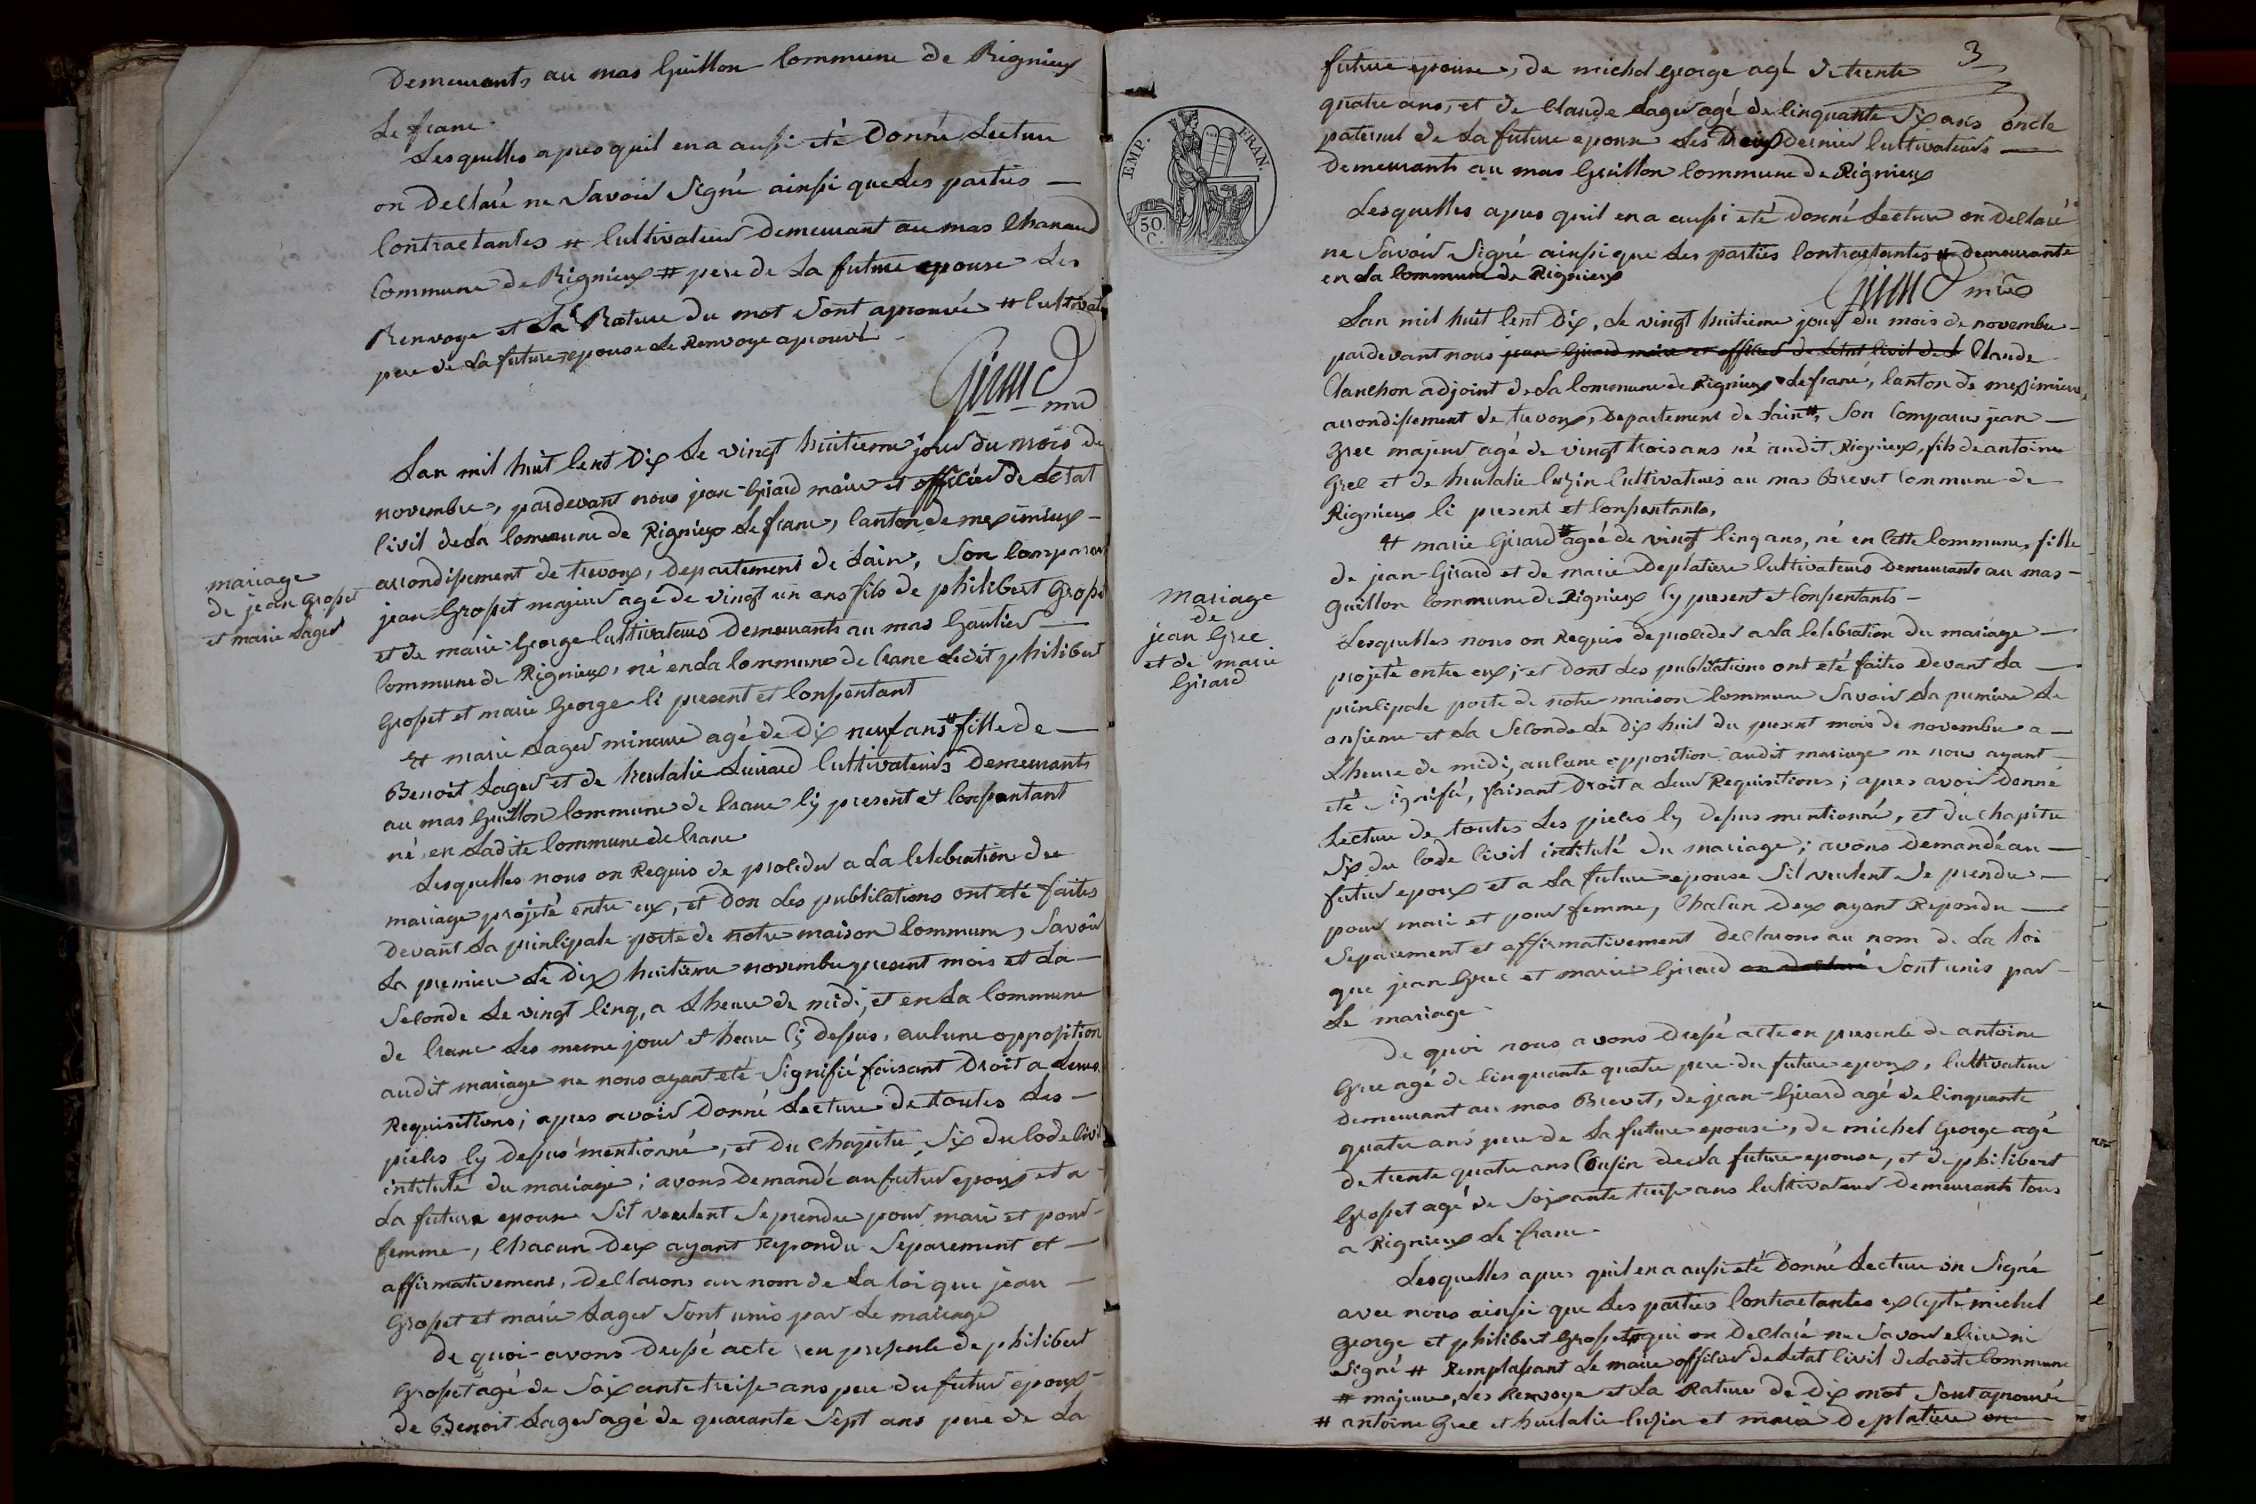 Demeurants au mas Guillon Commune de Rignieux
Le franc
Lesquelles apres quil en a aussi eté Donné Lecture
on Declaré ne Savoir Signé ainssi que Les parties
Contractantes # Cultivateur Demeurant au mas Chanaud
Commune de Rignieux # pere de La future epouse Les
Renvoye et La Rature du mot Sont aprouvés # Cultivat
pere de La future epouse Le Renvoye aprouvé
Girard
Lan mil huit Cent Dix Le vingt huitieme jour du mois de
novembre, pardevant nous jean Girard maire et officier de Letat
Civil de La Commune de Rignieux Le franc, Canton de meximieux
arrondissement de trevoux, Departement de Lain, Son Comparu
jean Grosset majeur agé de vingt un ans fils de philibert Grosset
et de marie George Cultivateurs Demeurants au mas Gautier
Commune de Rignieux, né en La Commune de Crane Ledit philibert
Grosset et marie George Ci present et Conssentant
Et marie Lager mineure agé de Dix neuf ans # fille de
Benoit Lager et de heulalie Cultivateurs Demeurants
au mas Guillon Commune de Crane Cy present et Conssentant
né en Ladite Commune de Crane
Lesquelles nous on Requis de proceder a La Celebration du
mariage projeté entre eux, et Don Les publications ont eté faites
Devant La principale porte de notre maison Commune, Savoir
La premiere Le Dix huitieme novembre present mois et La
Seconde Le vingt Cinq, a Lheure de midi, et en La Commune
de Crane Les meme jour et heure Cy Dessus, aucune opposition
audit mariage ne nous ayant eté Signifié faisant Droit a Leurs
Requisitions; apres avoir Donné Lecture de toutes Les
pieces Cy Dessus mentionné, et Du Chapitre Six du Code Civil
intitulé du mariage; avons Demandé au futur epoux et a
La future epouse Sil veulent Se prendre pour mari et pour
femme, Chacun Deux ayant Repondu Separement et
affirmativement, Declarons au nom de La Loi que jean
Grosset et marie Lager Sont unis par Le mariage
De quoi avons Dressé acte en presence de philibert
Grosset agé de Soixante treise ans pere du futur epoux
de Benoit Lager agé de quarante Sept ans pere de La
mariage
de jean Grosset
et marie Lager
3
future epouse, de michel George agé de trente
quatre ans, et de Claude Lager agé de Cinquante Six ans oncle
paternel de La future epouse Les Deux Dernier Cultivateurs
Demeurants au mas Guillon Commune de Rignieux
Lesquelles apres quil en a aussi eté Donné Lecture on Declaré
ne Savoir Signé ainssi que Les parties Contractantes # demeurante
en La Commune de Rignieux
Girard
EMP. FRAN.
50.
C.
Lan mil huit Cent Dix, Le vingt huitieme jour du mois de novembre
pardevant nous jean Girard maire et officier de Letat Civil de L Claude
Clanchon adjoint de La Commune de Rignieux Le franc, Canton de meximieux,
arrondissement de trevoux, Departement de Lain #, Son Comparus jean
Grec majeur agé de vingt trois ans né audit Rignieux, fils de antoine
Grec et de heulalie Cultivateurs au mas Brevet Commune de
Rignieux Ci present et Conssentants,
Et marie Girard # agéé de vingt Cinq ans, né en Cette Commune, fille
de jean Girard et de marie Deplatiere Cultivateurs Demeurants au mas
Guillon Commune de Rignieux Cy present et Conssentants
Lesquelles nous on Requis de proceder a La Celebration du mariage
projeté entre eux; et Dont Les publications ont eté faites Devant La
principale porte de notre maison Commune Savoir La premiere Le
onsieme et La Seconde Le Dix huit du present mois de novembre a
Lheure de midi, aucune opposition audit mariage ne nous ayant
eté Signifié, faisant Droit a Leur Requisitions; apres avoir Donné
Lecture de toutes Les pieces Cy Dessus mentionné, et du Chapitre
Six du Code Civil intitulé du mariage; avons Demandé au
futur epoux et a La future epouse Sil veulent Se prendre
pour mari et pour femme, Chacun Deux ayant Repondu
Separement et affirmativement Declarons au nom de La Loi
que jean Grec et marie Girard Sont unis par
Le mariage
De quoi nous avons Dressé acte en presence de antoine
Grec agé de Cinquante quatre pere du future epoux, Cultivateur
Demeurant au mas Brevet, de jean Girard agé de Cinquante
quatre ans pere de La future epouse, de michel George agé
de trente quatre ans Cousin de La future epouse, et de philibert
Grosset agé de Soixante treise ans Cultivateur Demeurants tous
a Rignieux Le franc
Lesquelles apres quil en a aussi eté Donné Lecture on Signé
avec nous ainssi que Les parties Contractantes excepté michel
George et philibert Grosset qui on Declaré ne Savoir ecrire ni
Signé # Remplassant Le maire officier de Letat Civil de Ladite Commune
# majeure, Les Renvoye et La Rature de Dix mot Sont aprouvé
# antoine Grec et heulalie et marie Deplatiere on
mariage
de
jean Grec
et de marie
Girard